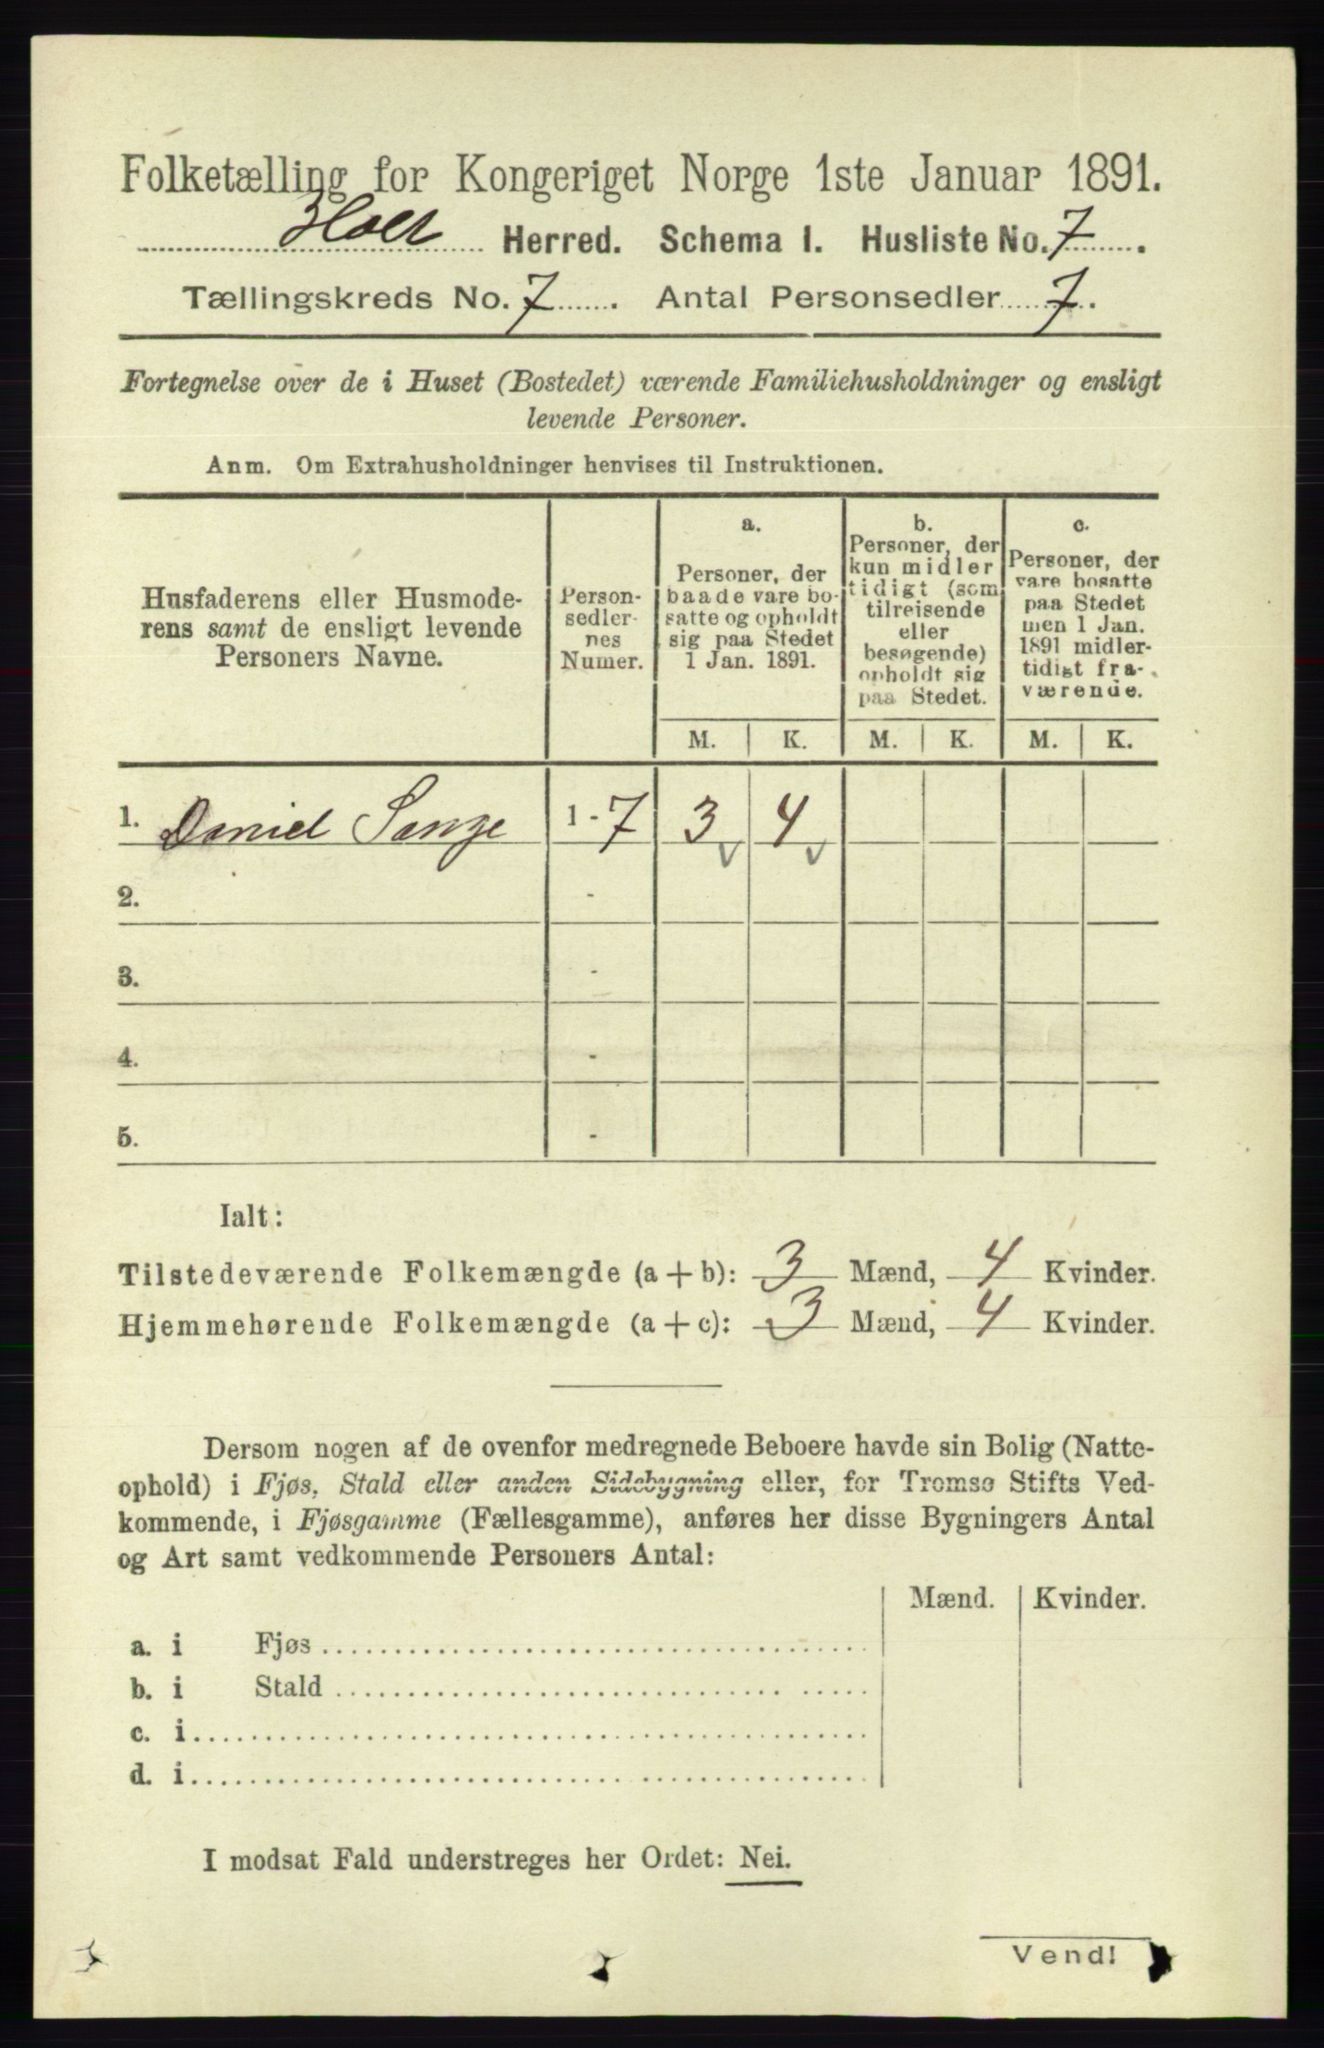 Folketælling for Kongeriget Norge 1ste Januar 1891.
Holt Herred. Schema 1. Husliste No. 7.
Tællingskreds No. 7. Antal Personsedler 7.
Fortegnelse over de i Huset (Bostedet) værende Familiehusholdninger og ensligt
levende Personer.
Anm. Om Extrahusholdninger henvises til Instruktionen.
Husfaderens eller Husmode-
rens samt de ensligt levende
Personers Navne.
Person-
sedler-
nes
Numer.
a.
Personer, der
baade vare bo-
satte og opholdt
sig paa Stedet
1 Jan. 1891.
b.
Personer, der
kun midler
tidigt (som
tilreisende
eller
besøgende)
opholdt sig
paa Stedet.
c.
Personer, der
vare bosatte
paa Stedet
men 1 Jan.
1891 midler-
tidigt fra-
værende.
M. K. M. K. M. K.
1. Daniel 1 - 7 3 4
2. -
3. -
4. -
5. -
Ialt:
Tilstedeværende Folkemængde (a + b): 3 Mænd, 4 Kvinder.
Hjemmehørende Folkemængde (a + c): 3 Mænd, 4 Kvinder.
Dersom nogen af de ovenfor medregnede Beboere havde sin Bolig (Natte-
ophold) i Fjøs, Stald eller anden Sidebygning eller, for Tromsø Stifts Ved-
kommende, i Fjøsgamme (Fællesgamme), anføres her disse Bygningers Antal
og Art samt vedkommende Personers Antal:
Mænd. Kvinder.
a. i Fjøs
b. i Stald
c. i
d. i
I modsat Fald understreges her Ordet: Nei.
Vend!